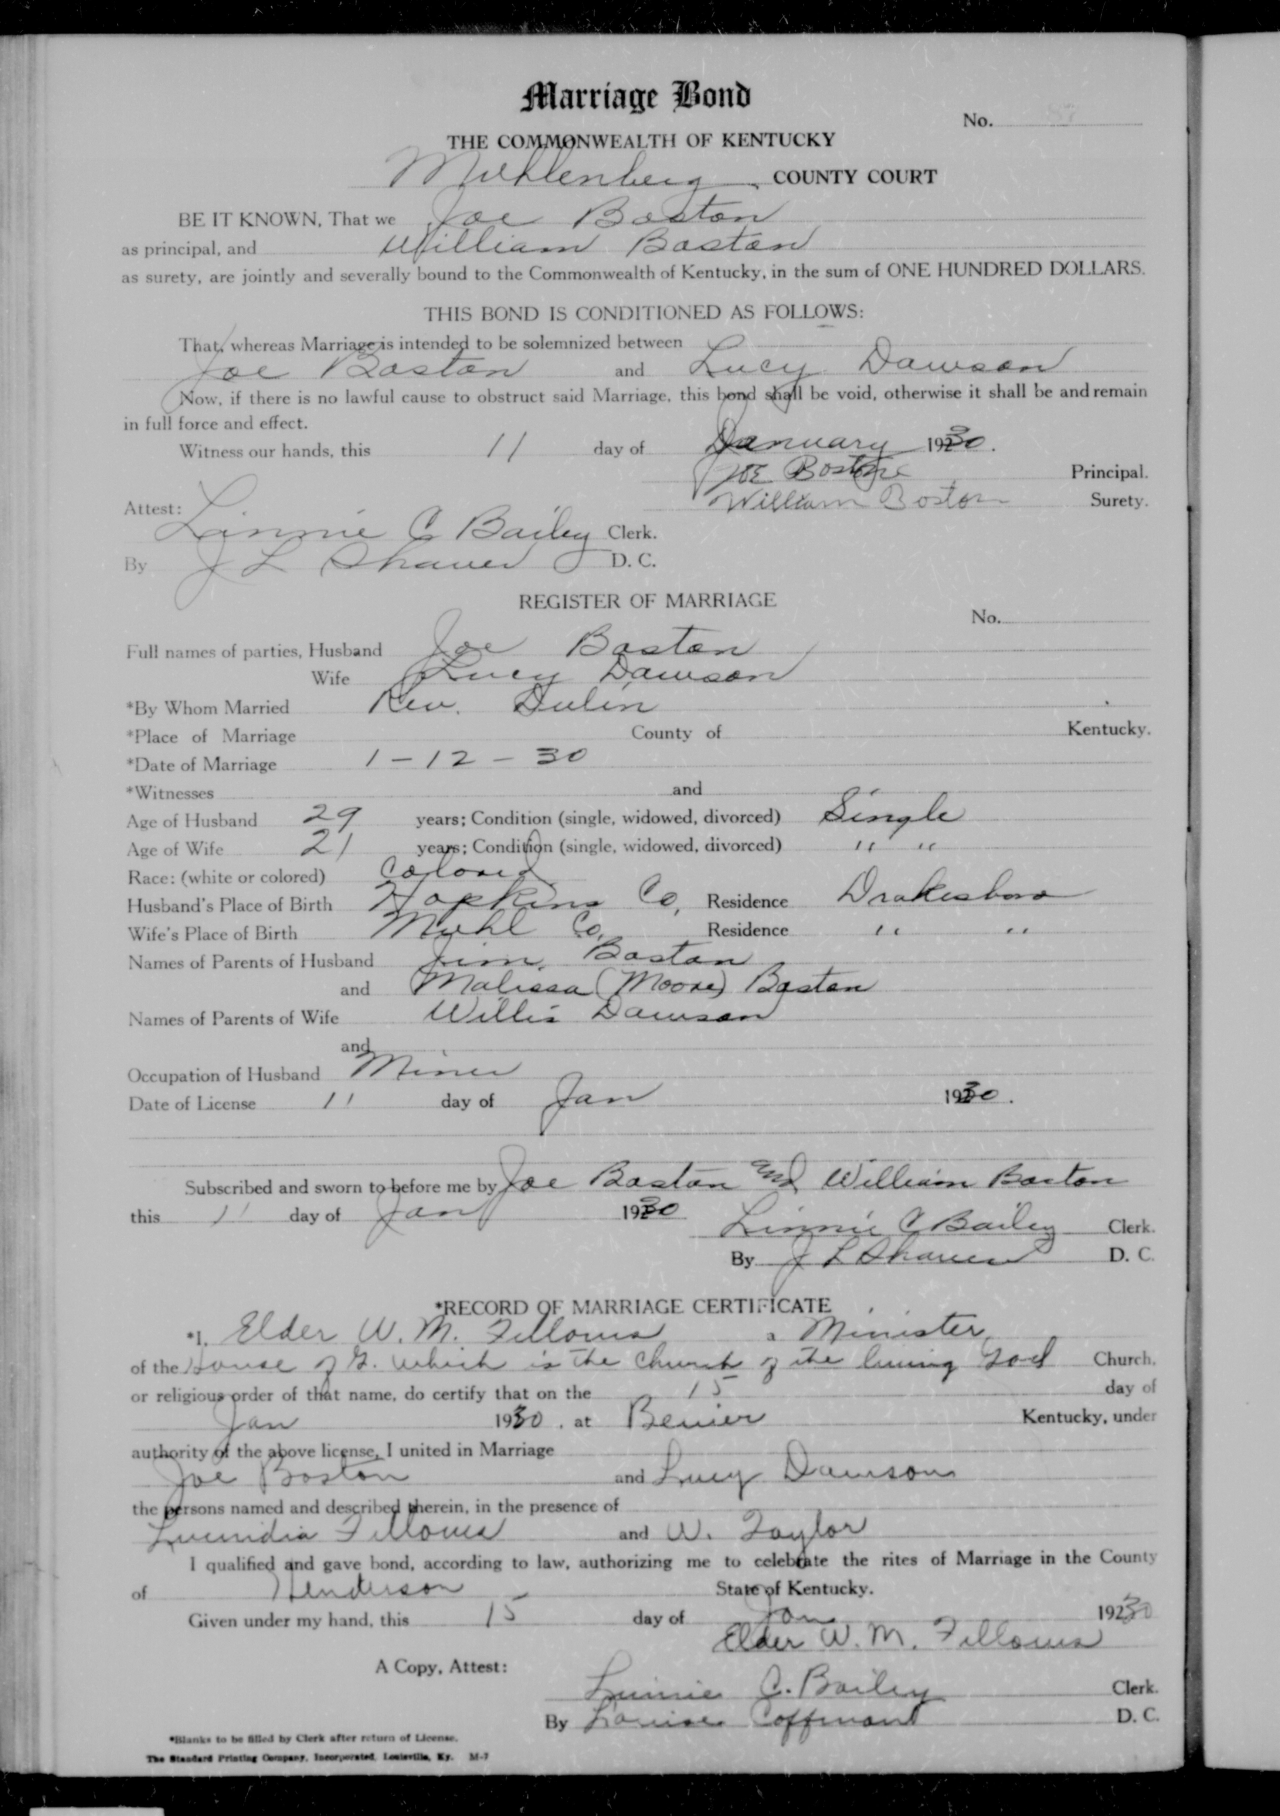 Marriage Bond
No.
THE COMMONWEALTH OF KENTUCKY
Muhlenberg COUNTY COURT
BE IT KNOWN, That we Joe Boston
as principal, and William Boston
as surety, are jointly and severally bound to the Commonwealth of Kentucky, in the sum of ONE HUNDRED DOLLARS.
THIS BOND IS CONDITIONED AS FOLLOWS:
That, whereas Marriage is intended to be solemnized between
Joe Boston and Lucy Dawson
Now, if there is no lawful cause to obstruct said Marriage, this bond shall be void, otherwise it shall be and remain
in full force and effect.
Witness our hands, this 11 day of January 1930.
Joe Boston Principal.
William Boston Surety.
Attest:
Linnie C Bailey Clerk.
By J L Shaver D. C.
REGISTER OF MARRIAGE
No.
Full names of parties, Husband Joe Boston
Wife Lucy Dawson
*By Whom Married Rev. Dulin
*Place of Marriage County of Kentucky.
*Date of Marriage 1-12-30
*Witnesses and
Age of Husband 29 years; Condition (single, widowed, divorced) Single
Age of Wife 21 years; Condition (single, widowed, divorced) " "
Race: (white or colored) Colored
Husband's Place of Birth Hopkins Co, Residence Drakesboro
Wife's Place of Birth Muhl Co, Residence " "
Names of Parents of Husband Jim Boston
and Malissa (Moore) Boston
Names of Parents of Wife Willis Dawson
and
Occupation of Husband Miner
Date of License 11 day of Jan 1930.
Subscribed and sworn to before me by Joe Boston and William Boston
this 11 day of Jan 1930
Linnie C Bailey Clerk.
By J L Shaver D. C.
*RECORD OF MARRIAGE CERTIFICATE
*I, Elder W. M. Fellows a Minister,
of the House of G. which is the church of the living God Church,
or religious order of that name, do certify that on the 15 day of
Jan 1930, at Bevier Kentucky, under
authority of the above license, I united in Marriage
Joe Boston and Lucy Dawson
the persons named and described therein, in the presence of
Fellows and W. Taylor
I qualified and gave bond, according to law, authorizing me to celebrate the rites of Marriage in the County
of Henderson State of Kentucky.
Given under my hand, this 15 day of Jan 1930
Elder W. M. Fellows
A Copy, Attest:
Linnie C. Bailey Clerk.
By Louise Coffman D. C.
*Blanks to be filled by Clerk after return of License.
The Standard Printing Company, Incorporated, Louisville, Ky. M-7